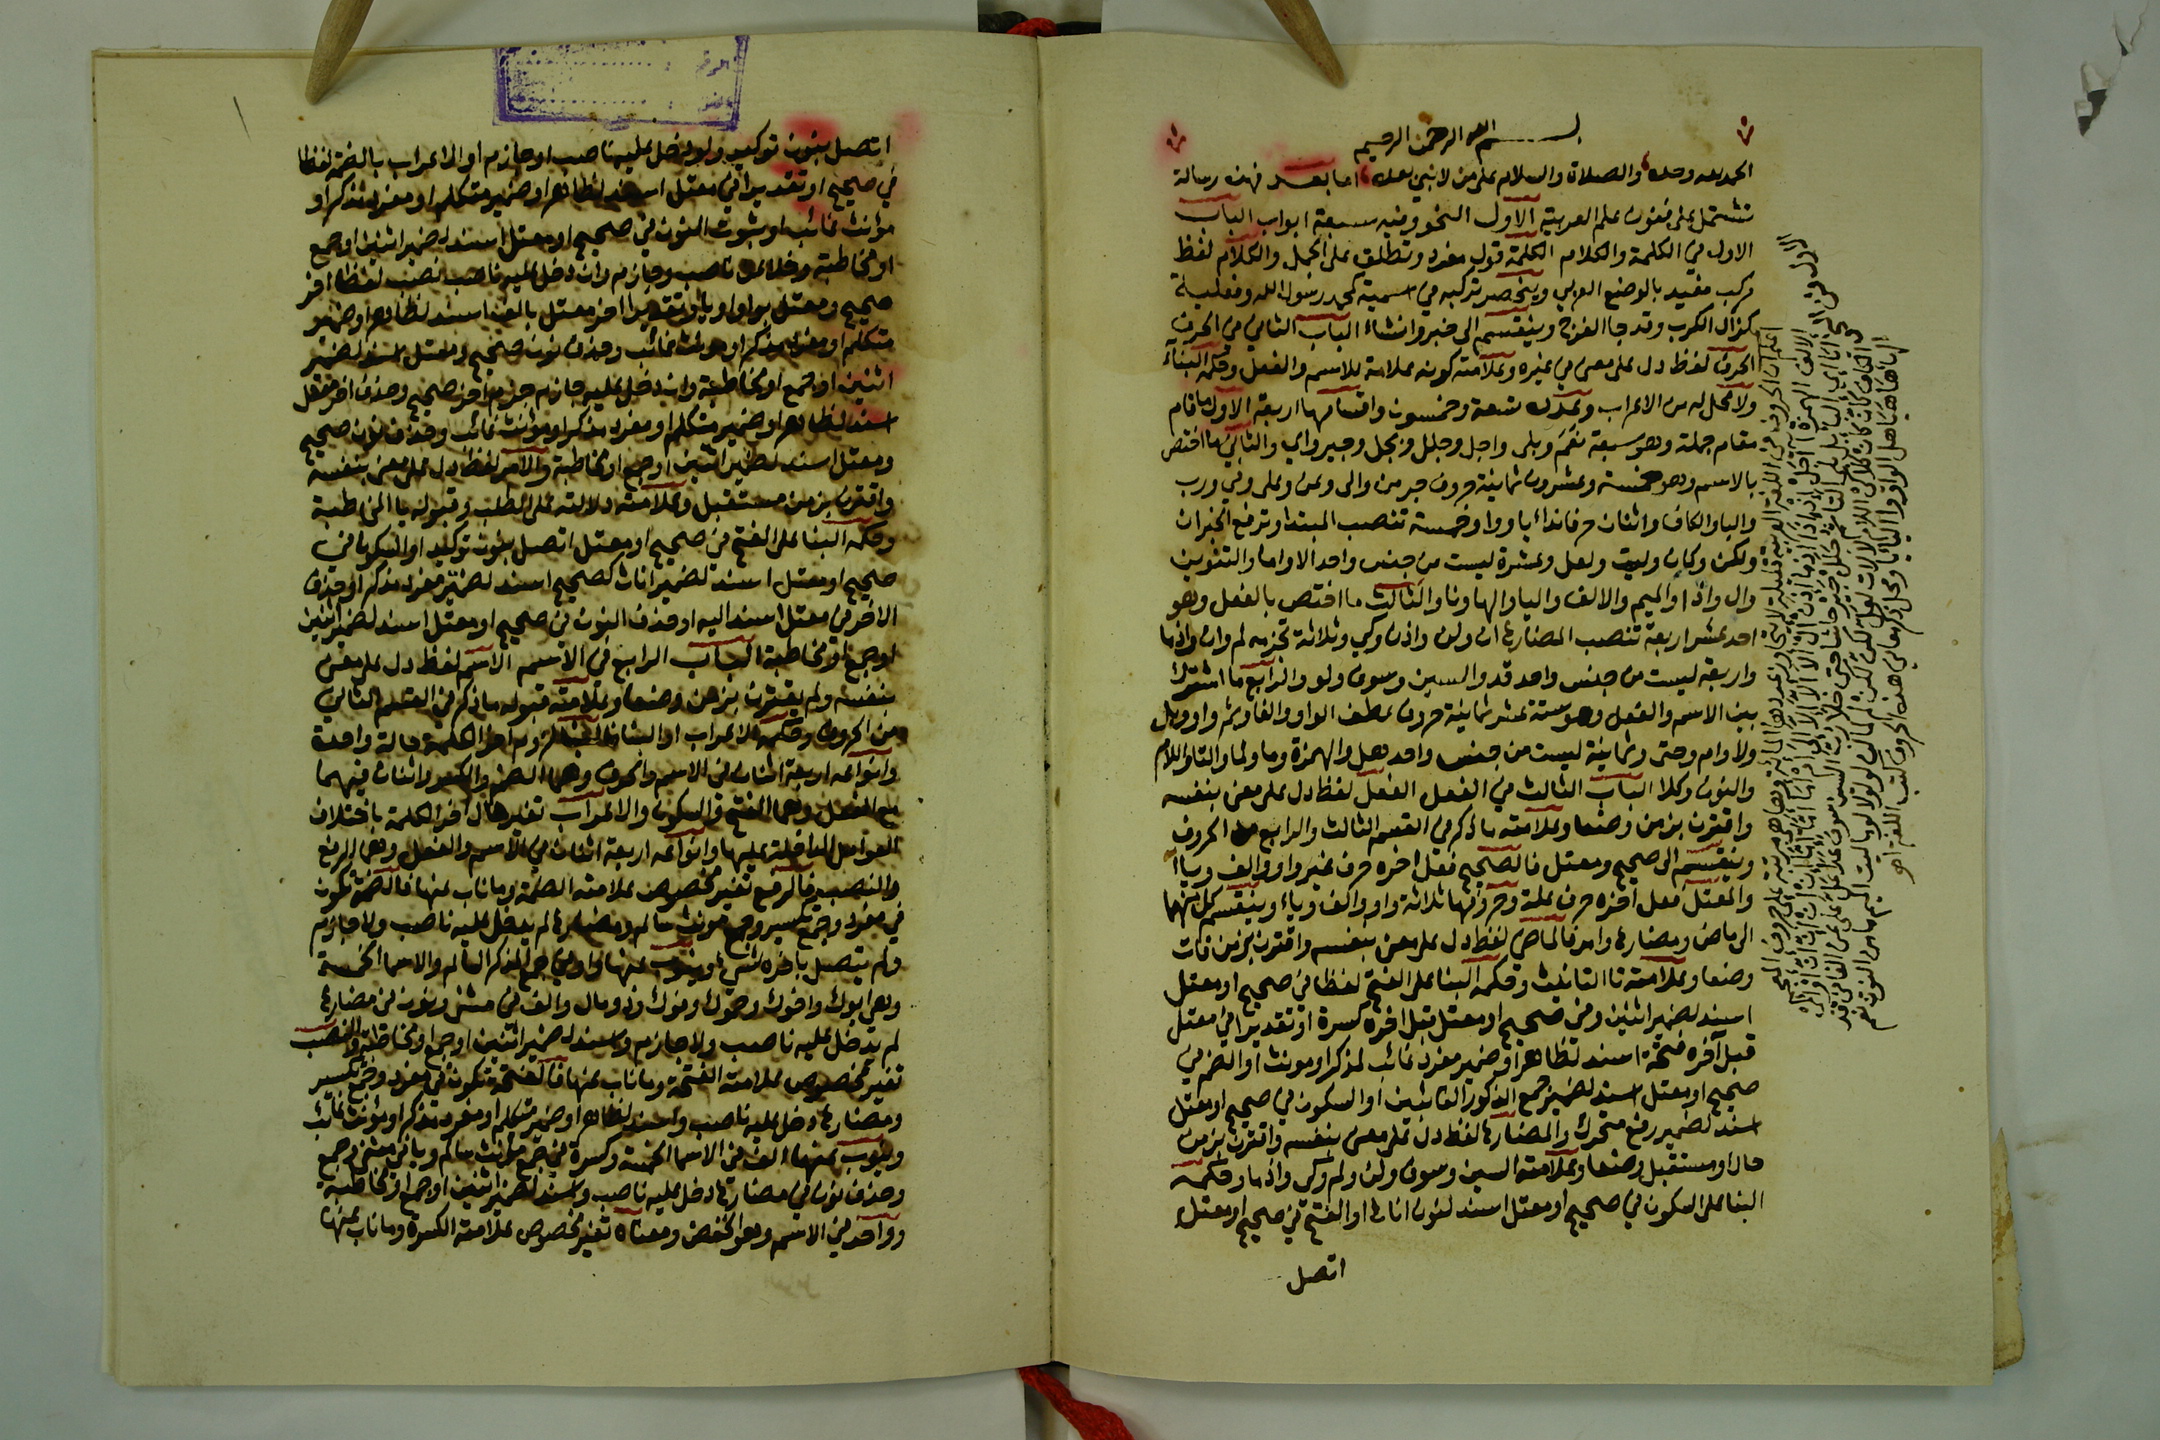 بسم الله الرحمن الرحيم
الحمد لله وحده والصلاة والسلام على من لا نبي بعده اما بعد فهذه رسالة
تشتمل على فنون علم العربية الاول النحو وفيه سبعة ابواب الباب
الاول في الكلمة والكلام الكلمة قول مفرد وتطلق على الجمل والكلام لفظ
مركب مفيد بالوضع العربي وينحصر تركيبه في اسمية كمحمد رسول الله وفعلية
كزال الكرب وقد جا الفرج وينقسم الى خبر وانشاء الباب الثاني في الحرف
الحرف لفظ دل على معنى في غيره وعلامته كونه علامة للاسم والفعل وحكمه البناء
ولا محل له من الاعراب وعدده تسعة وخمسون واقسامها اربعة الاول ما قام
مقام جملة وهو سبعة نعم وبلى واجل وجلل وبجل وجير واي والثاني ما اختص
بالاسم وهو خمسة وعشرون ثمانية حروف جر من والى وعن وعلى وفي ورب
والبا والكاف واثنان حرفا نداء يا ووا وخمسة تنصب المبتدا وترفع الخبر ان
ولكن وكان وليت ولعل وعشرة ليست من جنس واحد الا واما والتنوين
وال واذا والميم والالف واليا والها ونا والثالث ما اختص بالفعل وهو
احد عشر اربعة تنصب المضارع ان ولن واذن وكي وثلاثة تجزمه لم وان واذما
واربعة ليست من جنس واحد قد والسين وسوف ولو والرابع ما اشترك
بين الاسم والفعل وهو ستة عشر ثمانية حروف عطف الواو والفا وثم واو وبل
ولا وام وحتى وثمانية ليست من جنس واحد هل والهمزة وما ولما والتا واللام
والنون وكلا الباب الثالث في الفعل الفعل لفظ دل على معنى بنفسه
واقترن بزمن وضعا وعلامته ما ذكر في القسم الثالث والرابع من الحروف
وينقسم الى صحيح ومعتل فالصحيح فعل اخره حرف غير واو والف ويا
والمعتل فعل اخره حرف علة وحروفها ثلاثة واو والف وياء وينقسم كل منهما
الى ماض ومضارع وامر فالماضي لفظ دل على معنى بنفسه واقترن بزمن فات
وضعا وعلامته تا التانيث وحكمه البنا على الفتح لفظا في صحيح او معتل
اسند لضمير اثنين وفي صحيح او معتل قبل اخره كسرة او تقديرا في معتل
قبل اخره فتحة اسند لظاهر او ضمير مفرد غائب لمذكر او مونث او الضم في
صحيح او معتل اسند لضمير جمع الذكور الغائبين او السكون في صحيح او معتل
اسند لضمير رفع متحرك والمضارع لفظ دل على معنى بنفسه واقترن بزمن
حال او مستقبل وضعا وعلامته السين وسوف ولن ولم وكي واذما وحكمه
البنا على السكون في صحيح او معتل اسند لنون اناث او الفتح في صحيح او معتل
اتصل
اتصل بنون توكيد ولو دخل عليه ناصب او جازم او الاعراب بالضمة لفظا
في صحيح او تقديرا في معتل اسند لظاهر او ضمير متكلم او مفرد مذكر او
مؤنث غائب او بثبوت النون في صحيح او معتل اسند لضمير اثنين او جمع
او مخاطبة وخلا عن ناصب وجازم وان دخل عليه ناصب نصب لفظا اخر
صحيح ومعتل بواو او يا وتقديرا اخر معتل بالف اسند لظاهر او ضمير
متكلم او مفرد مذكر او مونث غائب وحذف نون صحيح ومعتل اسند لضمير
اثنين او جمع او مخاطبة وان دخل عليه جازم جزم اخر صحيح وحذف اخر معتل
اسند لظاهر او ضمير متكلم او مفرد مذكر او مونث غائب وحذف نون صحيح
ومعتل اسند لضمير اثنين او جمع او مخاطبة والامر لفظ دل على معنى بنفسه
واقترن بزمن مستقبل وعلامته دلالته على الطلب وقبوله يا المخاطبة
وحكمه البنا على الفتح في صحيح او معتل اتصل بنون توكيد او السكون في
صحيح او معتل اسند لضمير اناث كصحيح اسند لضمير مفرد مذكر او حذف
الاخر من معتل اسند اليه او حذف النون في صحيح او معتل اسند لضمير اثنين
او جمع او مخاطبة الباب الرابع في الاسم الاسم لفظ دل على معنى
بنفسه ولم يقترن بزمن وضعا وعلامته قبوله ما ذكر في القسم الثاني
من الحروف وحكمه الاعراب او البنا فالبنا لزوم اخر الكلمة حالة واحدة
وانواعه اربعة اثنان في الاسم والحرف وهما الضم والكسر واثنان فيهما
مع الفعل وهما الفتح والسكون والاعراب تغير حال اخر الكلمة باختلاف
العوامل الداخلة عليها وانواعه اربعة اثنان في الاسم والفعل وهما الرفع
والنصب فالرفع تغير مخصوص علامته الضمة وما ناب عنها فالضمة تكون
في مفرد وجمع تكسير وجمع مونث سالم ومضارع لم يدخل عليه ناصب ولا جازم
ولم يتصل باخره شيء وينوب عنها واو في جمع المذكر السالم والاسما الخمسة
وهي ابوك واخوك وحموك وفوك وذو مال والف في مثنى ونون في مضارع
لم يدخل عليه ناصب ولا جازم واسند لضمير اثنين او جمع او مخاطبة والنصب
تغير مخصوص علامته الفتحة وما ناب عنها فالفتحة تكون في مفرد وجمع تكسير
ومضارع دخل عليه ناصب واسند لظاهر او ضمير متكلم او مفرد مذكر او مؤنث غائب
وينوب عنها الف في الاسما الخمسة وكسرة في جمع مؤنث سالم ويا في مثنى وجمع
وحذف نون في مضارع دخل عليه ناصب واسند لضمير اثنين او جمع او مخاطبة
وواحد في الاسم وهو الخفض ومعناه تغير مخصوص علامته الكسرة وما ناب عنها